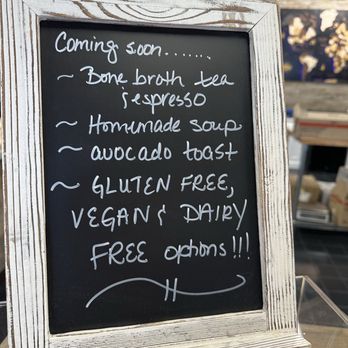 Coming soon.......
~ Bone broth tea
& espresso
~ Homemade soup
~ avocado toast
~ GLUTEN FREE,
VEGAN & DAIRY
FREE options!!!